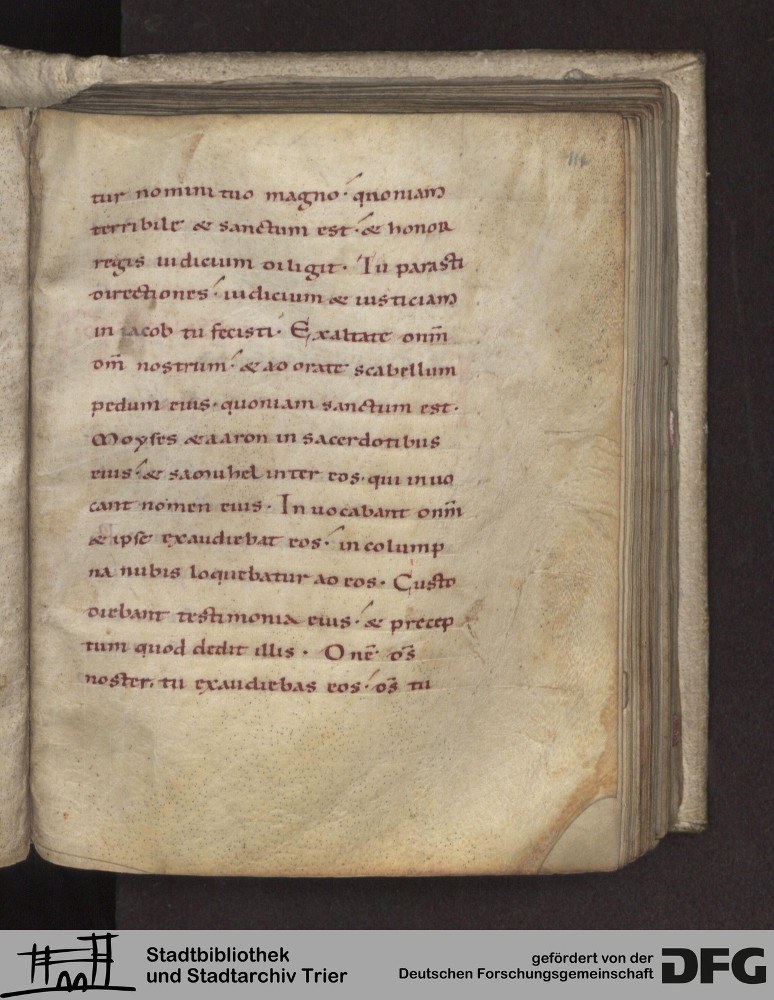 114
tur nomini tuo magno · quoniam
terribile & sanctum est · & honor
regis iudicium diligit · Tu parasti
directiones · iudicium & iusticiam
in iacob tu fecisti · Exaltate dn̄m
dm̄ nostrum · & adorate scabellum
pedum eius · quoniam sanctum est ·
Moyses & aaron in sacerdotibus
eius · & samuhel inter eos · qui inuo
cant nomen eius · Inuocabant dn̄m
& ipse exaudiebat eos · in colump
na nubis loquebatur ad eos · Custo
diebant testimonia eius · & precep
tum quod dedit illis · Dn̄e ds̄
noster, tu exaudiebas eos · ds̄ tu
Stadtbibliothek
und Stadtarchiv Trier
gefördert von der
Deutschen Forschungsgemeinschaft
DFG